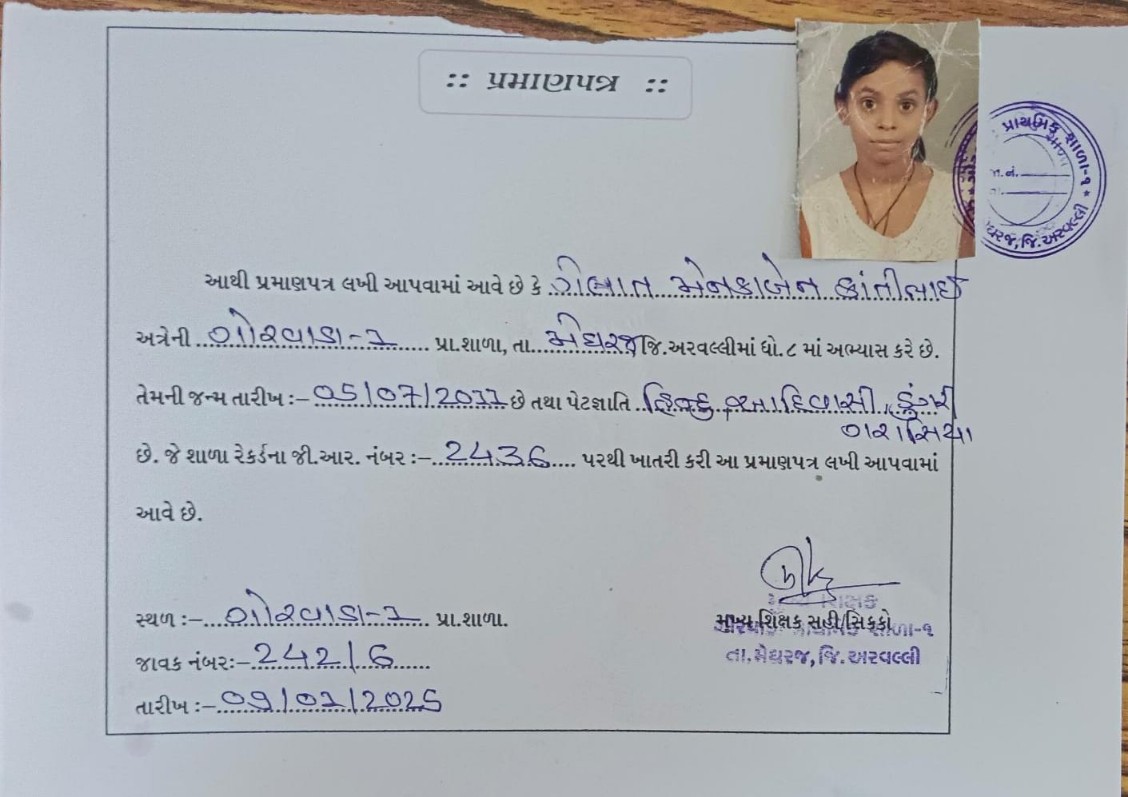 :: પ્રમાણપત્ર ::
પ્રાથમિક શાળા-૧ *
મેઘરજ,જિ.અરવલ્લી
આથી પ્રમાણપત્ર લખી આપવામાં આવે છે કે ગેલાત મેનકાબેન કાંતીભાઈ
અત્રેની ગોરવાડા-1 પ્રા.શાળા, તા. મેઘરજ જિ.અરવલ્લીમાં ધો.૮ માં અભ્યાસ કરે છે.
તેમની જન્મ તારીખ :- 05/07/2011 છે તથા પેટજ્ઞાતિ હિન્દુ આદિવાસી, ડુંગરી
ગરાસિયા
છે. જે શાળા રેકર્ડના જી.આર. નંબર :- 2436 પરથી ખાતરી કરી આ પ્રમાણપત્ર લખી આપવામાં
આવે છે.
સ્થળ :- ગોરવાડા-1 પ્રા.શાળા.
મુખ્ય શિક્ષક
મુખ્ય શિક્ષક સહી/સિક્કો
પ્રાથમિક શાળા-૧
જાવક નંબર:- 242/6
તા.મેઘરજ,જિ.અરવલ્લી
તારીખ :- 09/07/2025